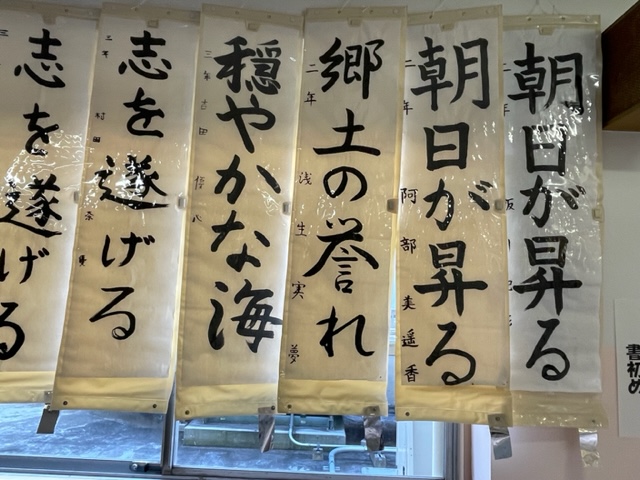 朝日が昇る
朝日が昇る
二年 阿部美遥香
郷土の誉れ
二年 浅生実夢
穏やかな海
三年 吉田
志を遂げる
三年 村田
志を遂げる
書初め